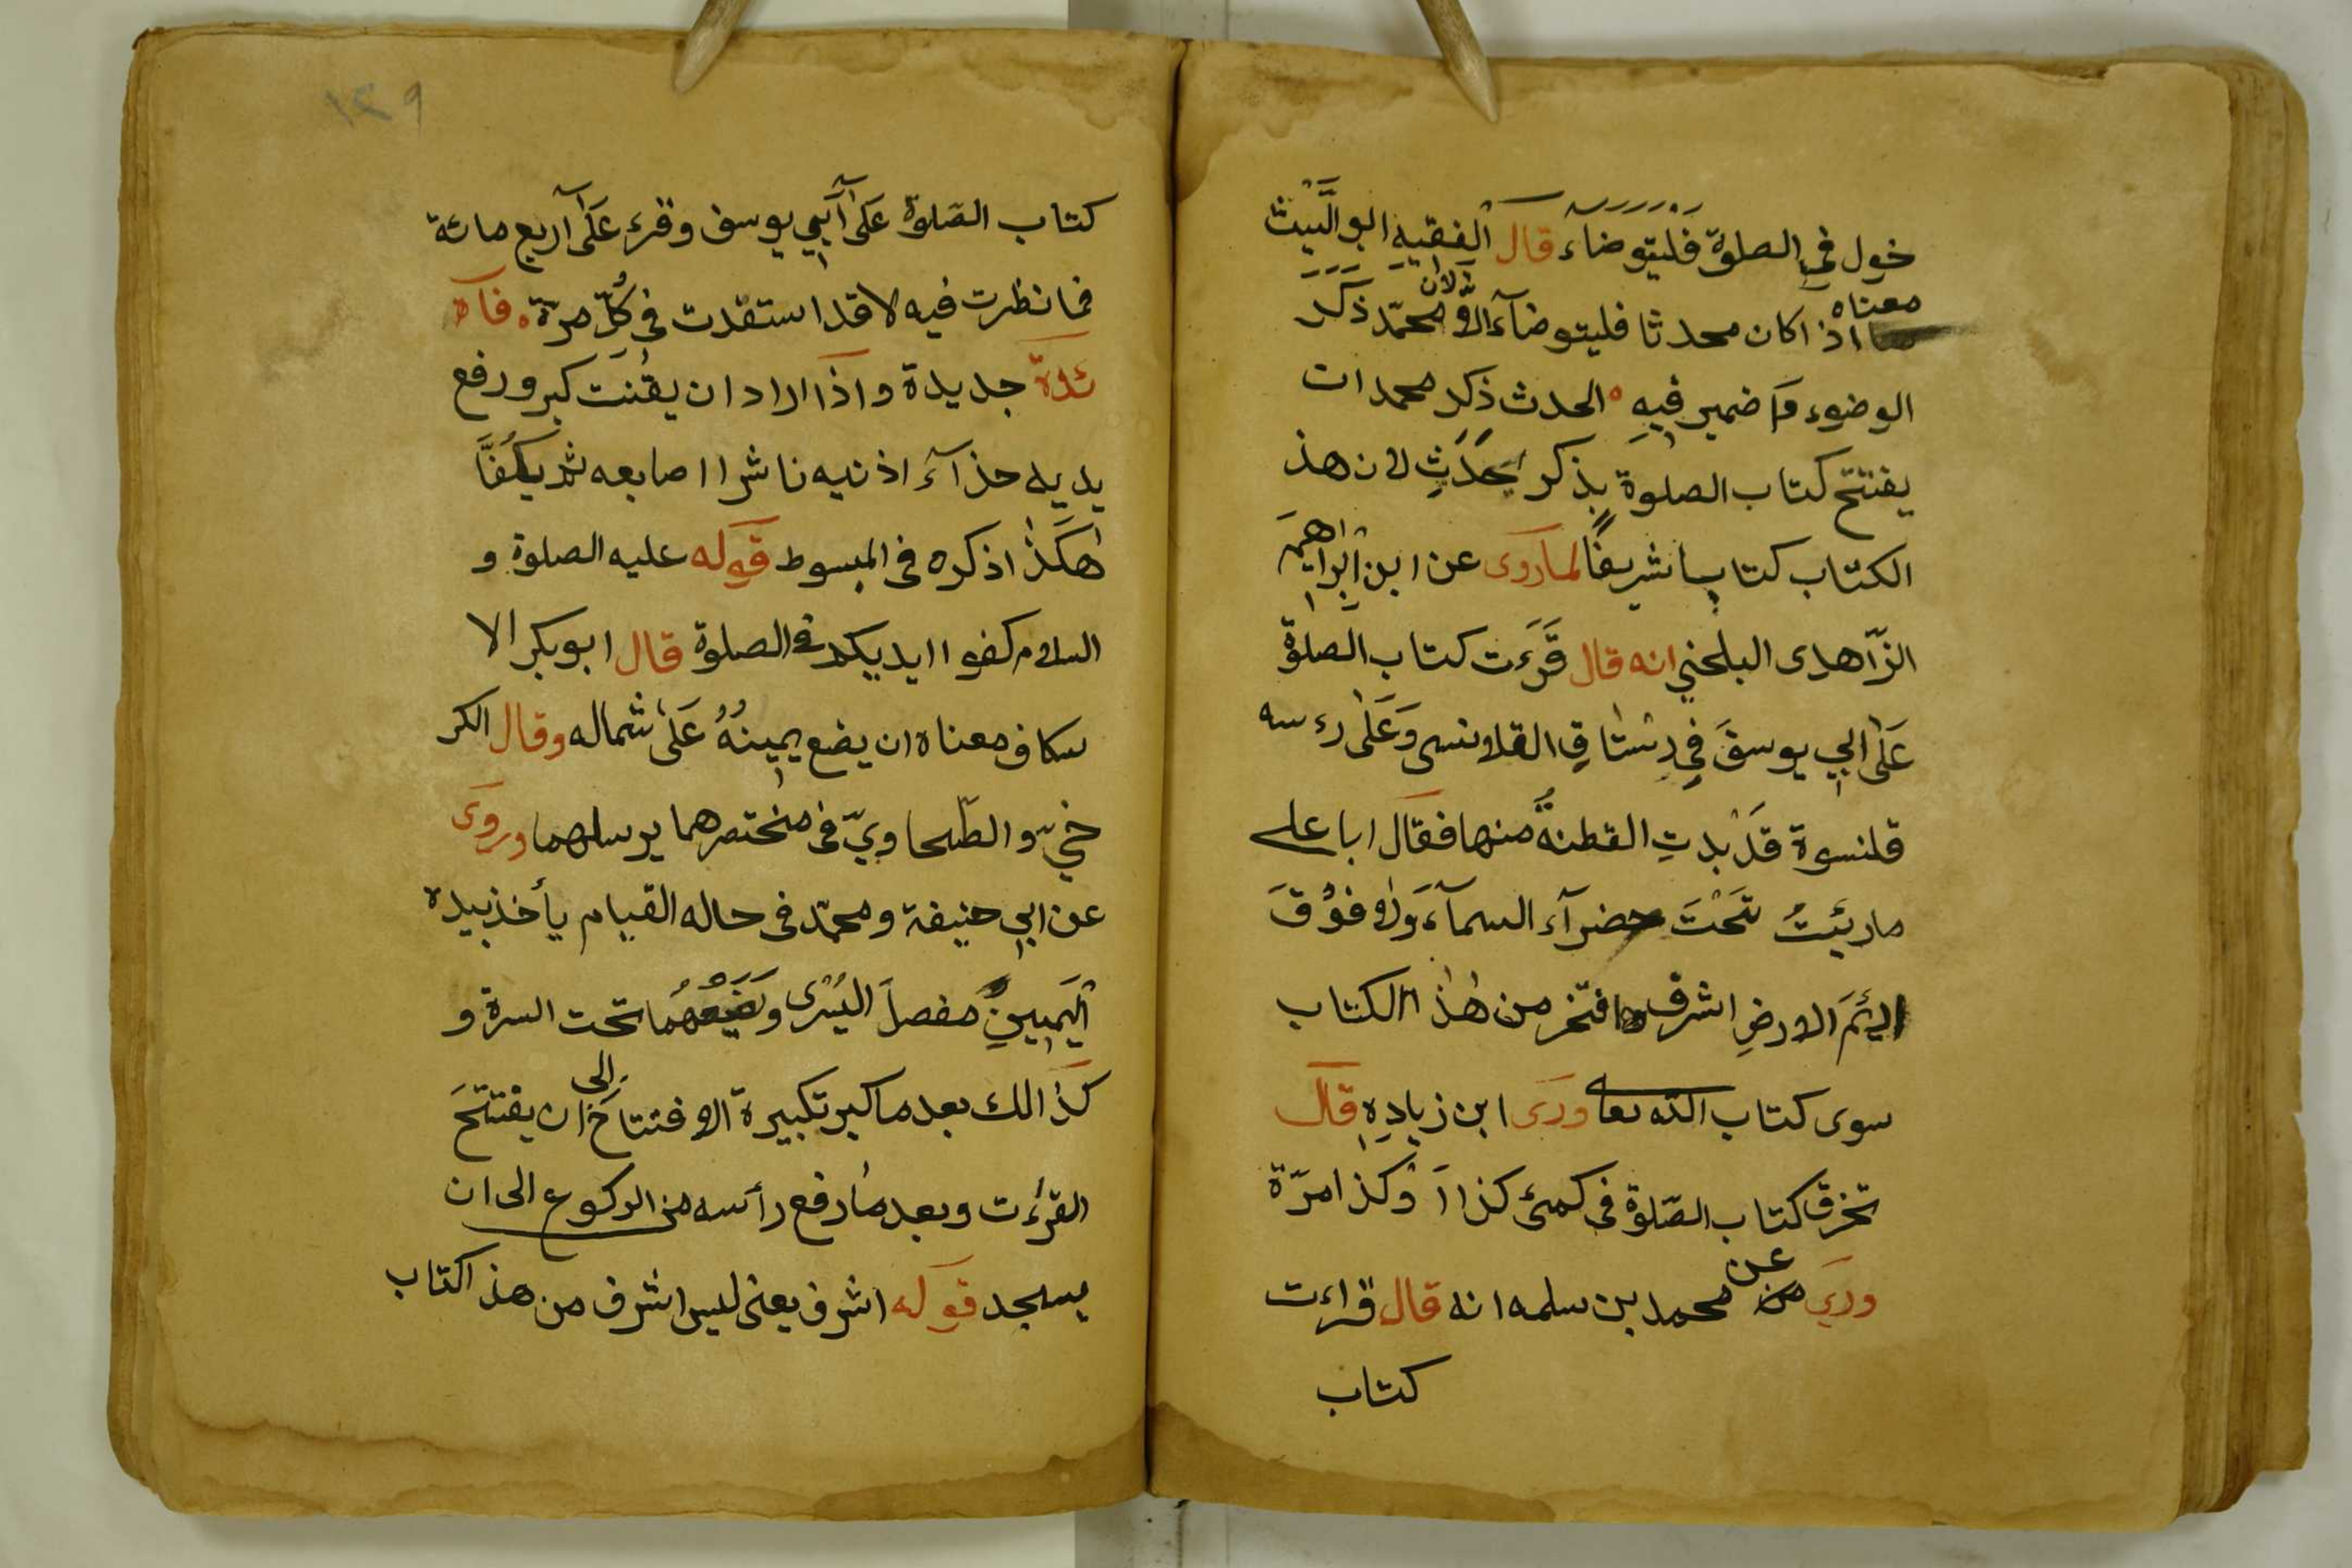 خول في الصلوة فليتوضاء قال الفقيه ابو الليث
معناه اذا كان محدثا فليتوضآء لان محمد ذكر
الوضوء واضمير فيه الحدث ذكر محمد ان
يفتتح كتاب الصلوة بذكر يحدث لان هذ
الكتاب كتابا شريفا لما روى عن ابن ابراهيم
الزاهدى البلخي انه قال قرءت كتاب الصلوة
على ابي يوسف في رستاق القلانسى وعلى رءسه
قلنسوة قد بدت القطنة منها فقال ابا على
ماريئت تحت خضرآء السمآء ولا فوق
اديم الارض اشرف وافخر من هذا الكتاب
سوى كتاب الله تعا وروى ابن زياده قال
تخرق كتاب الصلوة فى كمى كذا او كذا مرة
وروي عن محمد بن سلمه انه قال قراءت
كتاب
١٢٩
كتاب الصلوة على ابي يوسف وقرء على اربع مائة
فما نظرت فيه لا قد استفدت في كل مرة فآ
ئدة جديدة واذا اراد ان يقنت كبر ورفع
يديه حذآء اذنيه ناشرا اصابعه ثم يكفا
هكذا ذكره فى المبسوط قوله عليه الصلوة و
السلام كفوا ايديكم في الصلوة قال ابو بكر الا
سكاف معناه ان يضع يمينه على شماله وقال الكر
خي والطحاوي فى مختصرهما يرسلهما وروى
عن ابي حنيفة ومحمد فى حاله القيام يأخذ بيده
اليمين مفصل اليسرى ويضعهما تحت السرة و
كذالك بعد ما كبر تكبيرة الافتتاح الى ان يفتتح
القرءت وبعد ما رفع رأسه من الركوع الى ان
يسجد قوله اشرف يعنى ليس اشرف من هذ اكتاب